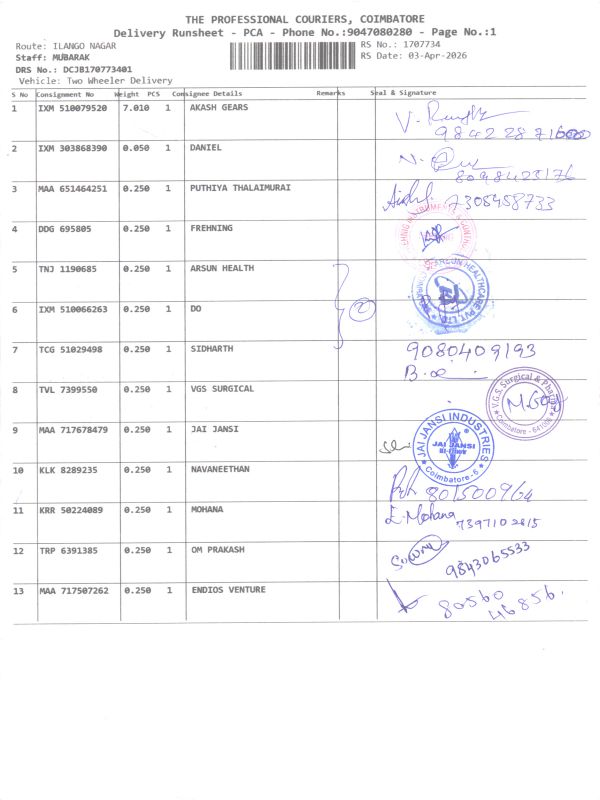 THE PROFESSIONAL COURIERS, COIMBATORE
Delivery Runsheet - PCA - Phone No.:9047080280 - Page No.:1
Route: ILANGO NAGAR RS No.: 1707734
Staff: MUBARAK RS Date: 03-Apr-2026
DRS No.: DCJB170773401
Vehicle: Two Wheeler Delivery
S No Consignment No Weight PCS Consignee Details Remarks Seal & Signature
1 IXM 510079520 7.010 1 AKASH GEARS
2 IXM 303868390 0.050 1 DANIEL
8098423176
3 MAA 651464251 0.250 1 PUTHIYA THALAIMURAI 7305458733
4 DDG 695805 0.250 1 FREHNING
5 TNJ 1190685 0.250 1 ARSUN HEALTH
6 IXM 510066263 0.250 1 DO 2
7 TCG 51029498 0.250 1 SIDHARTH 9080409193
8 TVL 7399550 0.250 1 VGS SURGICAL V.G.S. Surgical & Coimbatore
9 MAA 717678479 0.250 1 JAI JANSI JAI JANSI INDUSTRIES JAI JANSI Coimbatore-6
10 KLK 8289235 0.250 1 NAVANEETHAN
801500964
11 KRR 50224089 0.250 1 MOHANA E. Mohana
7397102615
12 TRP 6391385 0.250 1 OM PRAKASH
9843065533
13 MAA 717507262 0.250 1 ENDIOS VENTURE
80560
46856.